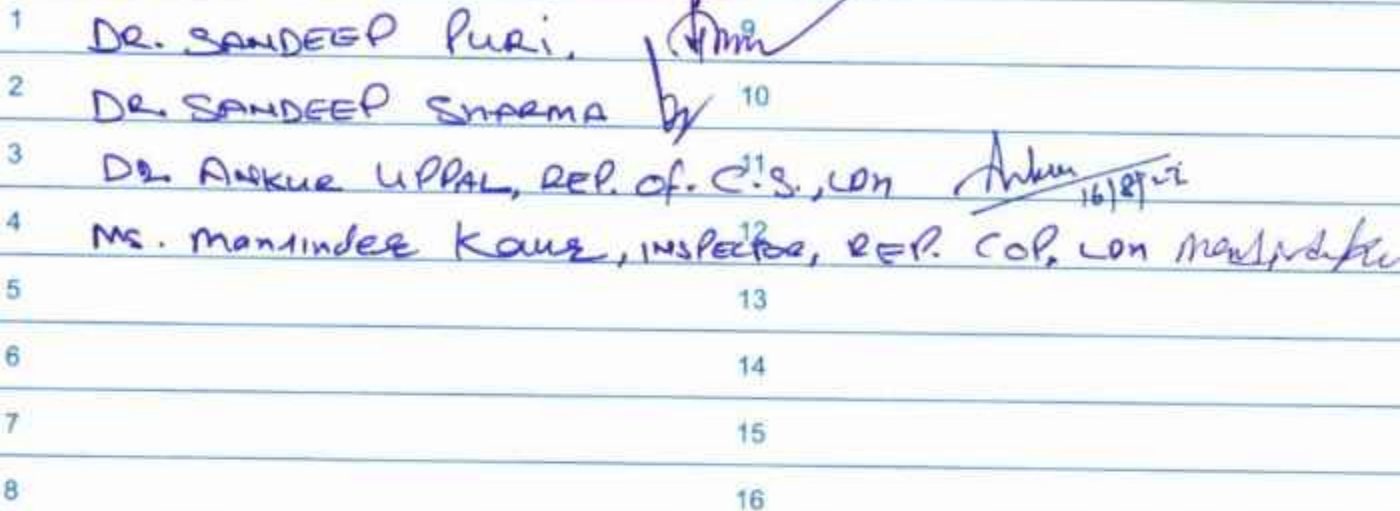 1 DR. SANDEEP PURI, 9
2 DR. SANDEEP SHARMA 10
3 DR. ANKUR UPPAL, REP. Of. C.S., LDH 11 Ankur
4 Ms. Maninder Kaur, INSPECTOR, REP. COP, LDH 12
5 13
6 14
7 15
8 16